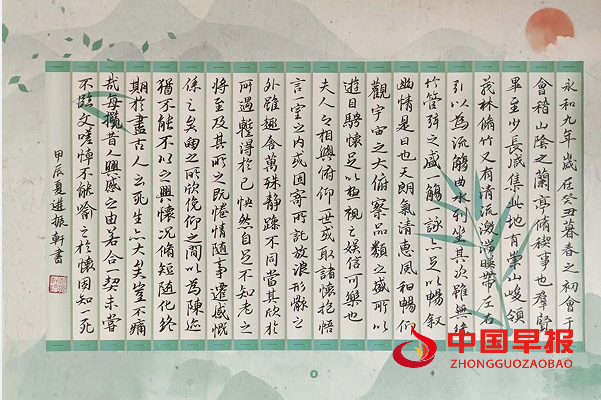 永和九年歲在癸丑暮春之初會于
會稽山陰之蘭亭脩禊事也羣賢
畢至少長咸集此地有崇山峻領
茂林脩竹又有清流激湍暎帶左右
引以為流觴曲水列坐其次雖無絲
竹管弦之盛一觴一詠亦足以暢叙
幽情是日也天朗氣清惠風和暢仰
觀宇宙之大俯察品類之盛所以
遊目騁懷足以極視之娱信可樂也
夫人之相與俯仰一世或取諸懷抱悟
言一室之内或因寄所託放浪形骸之
外雖趣舍萬殊静躁不同當其欣於
所遇蹔得於己快然自足不知老之
將至及其所之既惓情隨事遷感慨
係之矣向之所欣俛仰之間以為陳迹
猶不能不以之興懷況脩短隨化終
期於盡古人云死生亦大矣豈不痛
哉每攬昔人興感之由若合一契未嘗
不臨文嗟悼不能喻之於懷固知一死
甲辰夏進振軒書
中国早报
ZHONGGUOZAOBAO